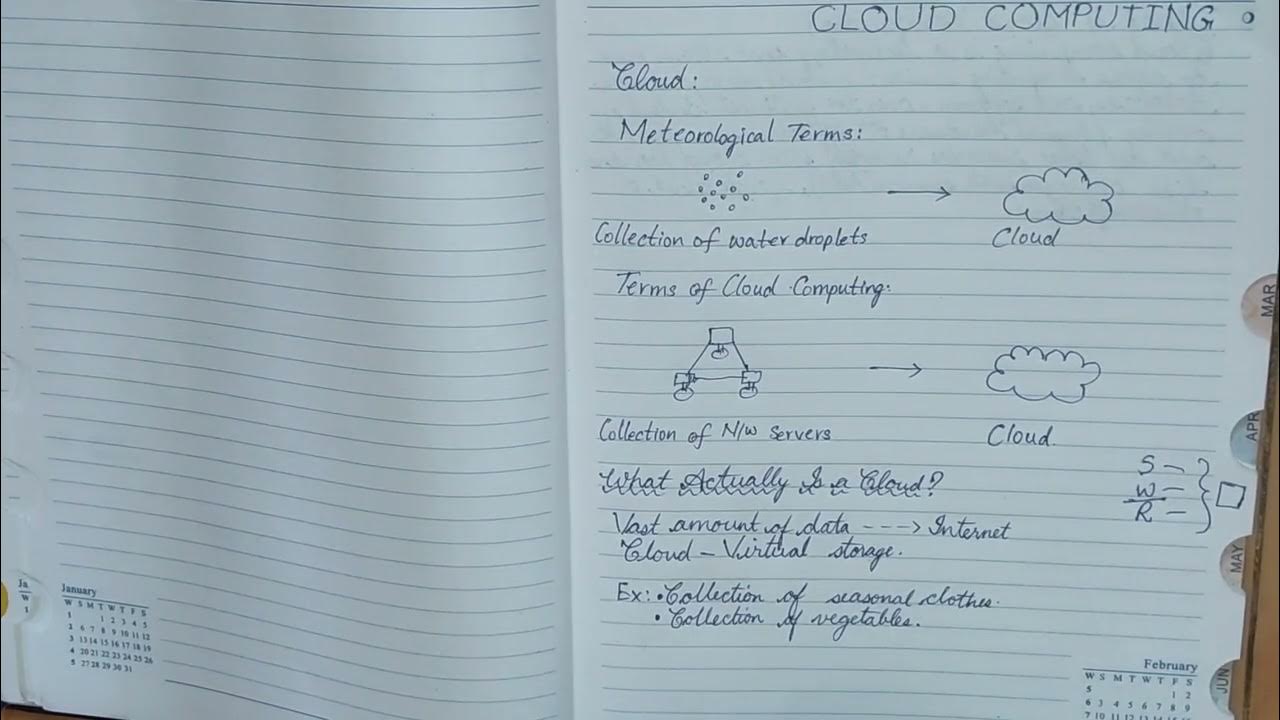 CLOUD COMPUTING
Cloud:
Meteorological Terms:
Collection of water droplets
Cloud
Terms of Cloud Computing:
Collection of N/w Servers
Cloud.
What Actually Is a Cloud?
S -
W -
R -
Vast amount of data ----> Internet
Cloud - Virtual storage.
Ex: • Collection of seasonal clothes.
• Collection of vegetables.
MAR
APR
MAY
JUN
Ja
W
1
January
W S M T W T F S
1 1 2 3 4 5
2 6 7 8 9 10 11 12
3 13 14 15 16 17 18 19
4 20 21 22 23 24 25 26
5 27 28 29 30 31
February
W S M T W T F S
5 1 2
6 3 4 5 6 7 8 9